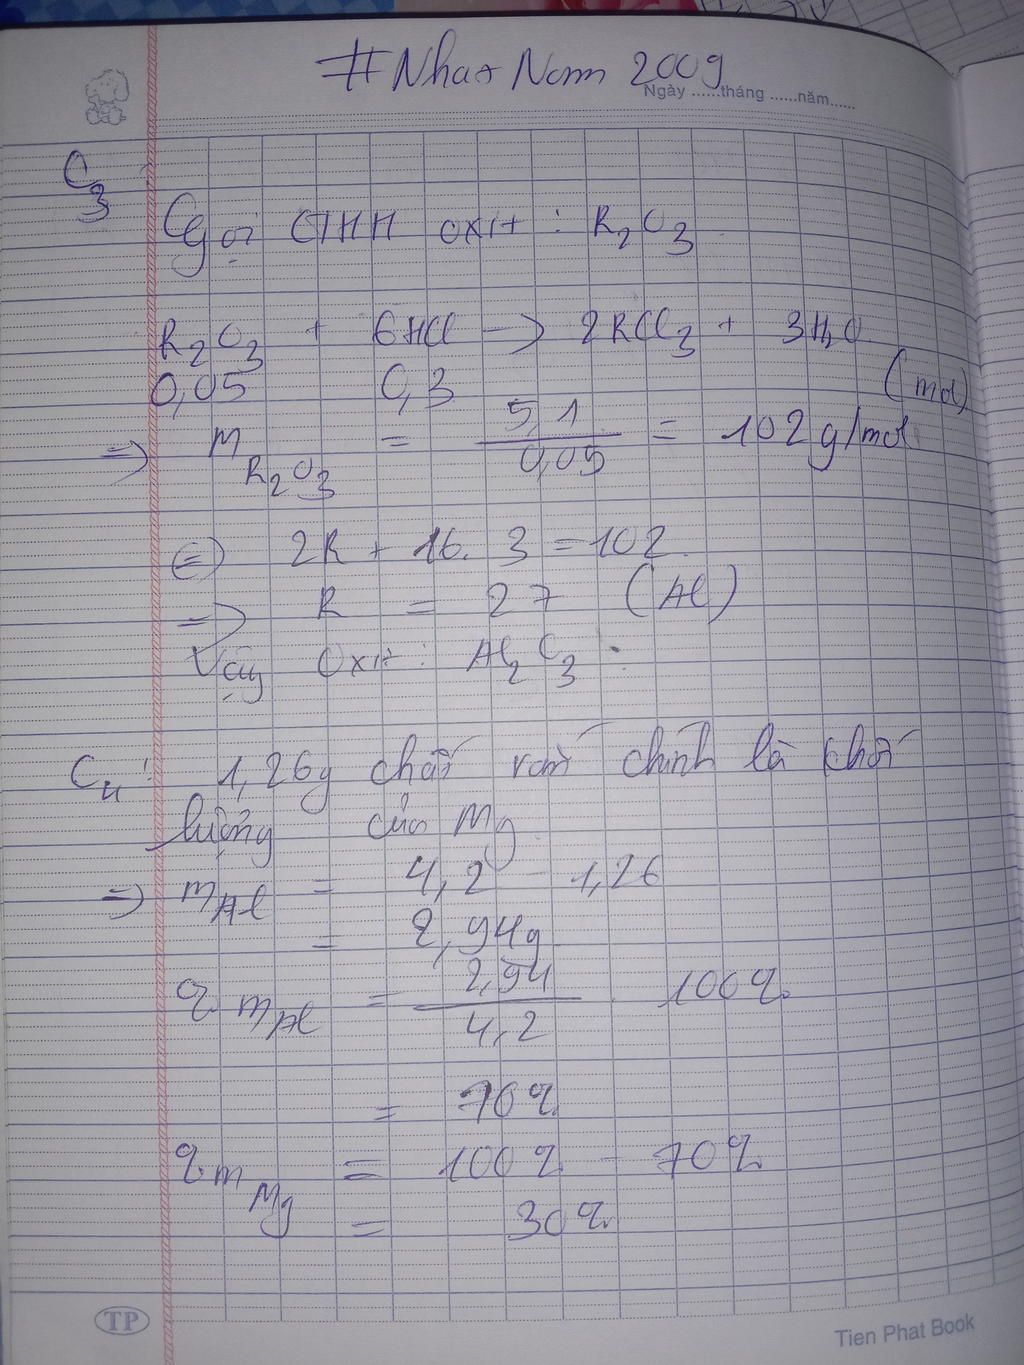 #Nhat Nam 2009
Ngày ......tháng ......năm......
C3
Gọi CTHH oxit : R2O3
R2O3 + 6HCl -> 2RCl3 + 3H2O
0,05 0,3 (mol)
=> M R2O3 = 5,1 / 0,05 = 102 g/mol
<=> 2R + 16. 3 = 102.
=> R = 27 (Al)
Vậy Oxit : Al2O3.
C4: 1,26g chất rắn chính là khối
lượng của Mg
=> mAl = 4,2 - 1,26
= 2,94g
% mAl = 2,94 / 4,2 . 100%
= 70%
% mMg = 100% - 70%
= 30%
TP
Tien Phat Book